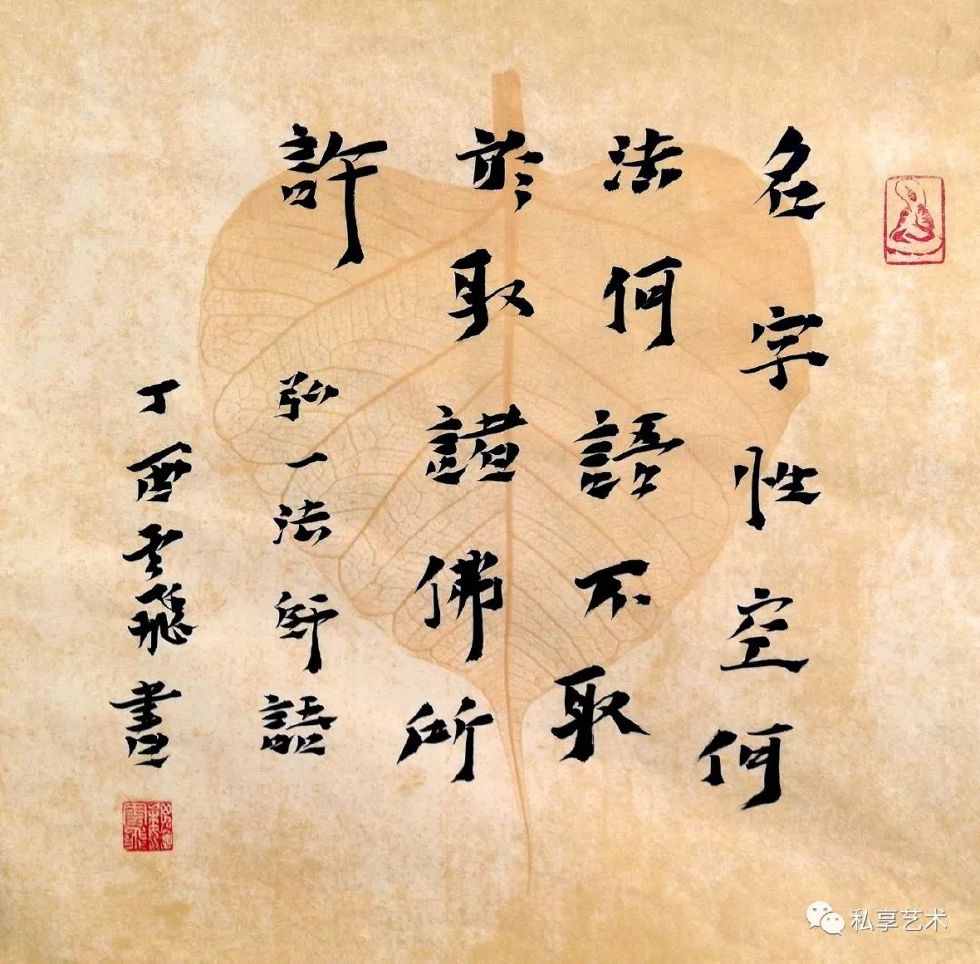 名字性空何
法何語不取
於取諸佛所
許
弘一法師語
丁酉云飛書
私享艺术